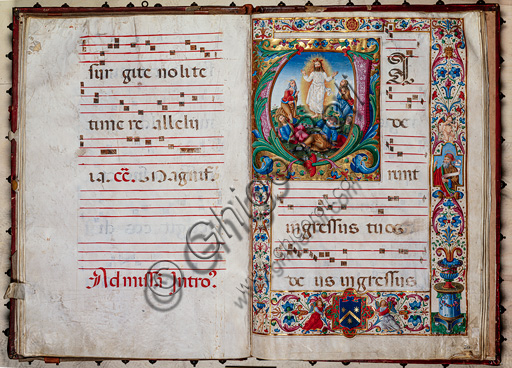 surgite nolite
timere allelu
ia. cc. Magnif
Ad missā Intro?
V A
de
runt
ingressus tuos
deus ingressus
Ghigo